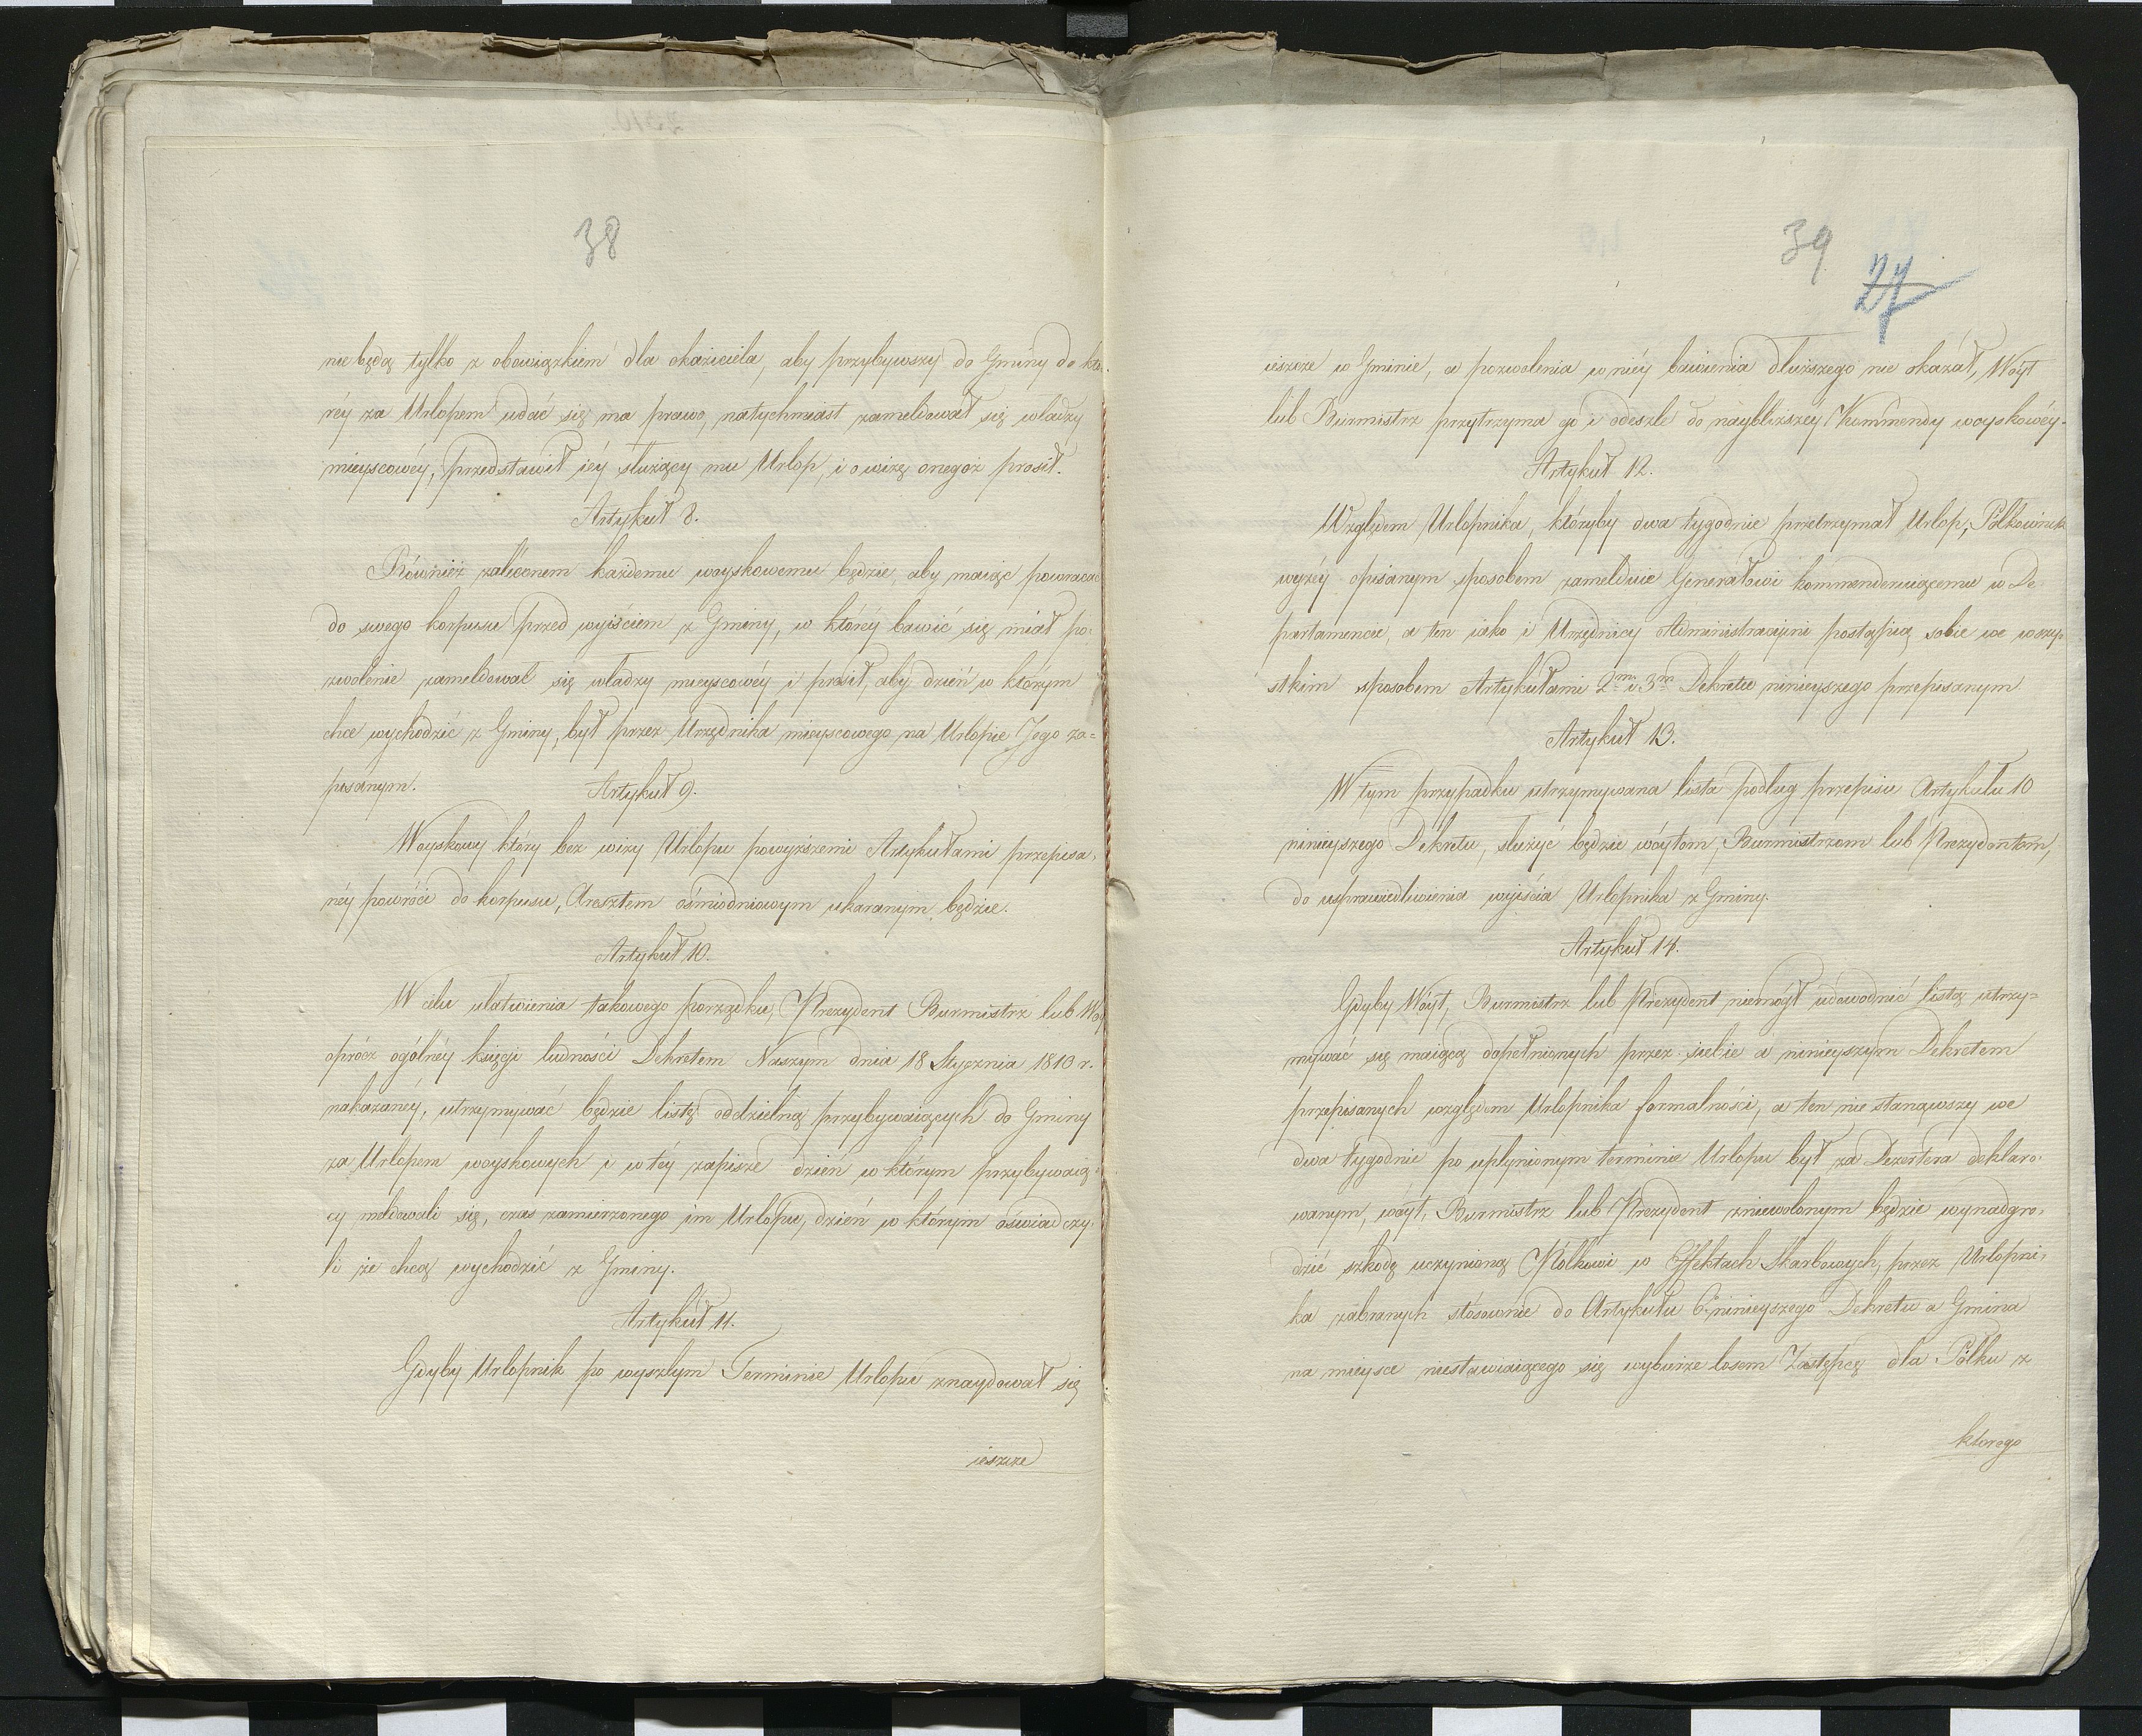 38
nie będą tylko z obowiązkiem dla okaziciela, aby przybywszy do Gminy do któ-
réy za Urlopem udać się ma prawo, natychmiast zameldował się władzy
mieyscowéy, przedstawił iéy służący mu Urlop, i o wizę onegoż prosił.
Artykuł 8.
Również zaleconem każdemu woyskowemu będzie, aby maiąc powracać
do swego korpusu przed wyiściem z Gminy, w któréy bawić się miał po-
zwolenie zameldował się władzy mieyscowéy i prosił, aby dzień w którym
chce wychodzić z Gminy, był przez Urzędnika mieyscowego na Urlopie Jego za=
pisanym.
Artykuł 9.
Woyskowy który bez wizy Urlopu powyższemi Artykułami przepisa-
néy powróci do korpusu, Aresztem ośmiodniowym ukaranym będzie.
Artykuł 10.
W celu ułatwienia takowego porządku, Prezydent Burmistrz lub Wóyt
oprócz ogólnéy księgi ludności Dekretem Naszym dnia 18 Stycznia 1810 r.
nakazanéy, utrzymywać będzie listę oddzielną przybywaiących do Gminy
za Urlopem woyskowych i w téy zapisze dzień w którym przybywaią-
cy meldowali się, czas zamierzonego im Urlopu, dzień w którym oświadczy-
li że chcą wychodzić z Gminy.
Artykuł 11.
Gdyby Urlopnik po wyszłym Terminie Urlopu znaydował się
ieszcze
39
27
ieszcze w Gminie, a pozwolenia w niéy bawienia dłuższego nie okazał, Wóyt
lub Burmistrz przytrzyma go i odeszle do naybliższey Kommendy woyskowéy.
Artykuł 12.
Względem Urlopnika, któryby dwa tygodnie przetrzymał Urlop, Półkownik
wyżéy opisanym sposobem zamelduie Generałowi kommenderuiącemu w De
partamencie, a ten iako i Urzędnicy Administracyini postąpią sobie we wszy-
stkim sposobem Artykułami 2m i 3m Dekretu ninieyszego przepisanym
Artykuł 13.
W tym przypadku utrzymywana lista podług przepisu Artykułu 10
ninieyszego Dekretu, służyć będzie wóytom, Burmistrzom lub Prezydentom,
do usprawiedliwienia wyiścia Urlopnika z Gminy.
Artykuł 14.
Gdyby Wóyt, Burmistrz lub Prezydent niemógł udowodnić listą utrzy=
mywać się maiącą dopełnionych przez siebie a ninieyszym Dekretem
przepisanych względem Urlopnika formalności, a ten nie stanąwszy we
dwa tygodnie po upłynionym terminie Urlopu był za Dezertera deklaro-
wanym, wóyt, Burmistrz lub Prezydent zniewolonym będzie wynadgro-
dzić szkodę uczynioną Półkowi w Effektach Skarbowych, przez Urlopni-
ka zabranych stósownie do Artykułu 6 ninieyszego Dekretu a Gmina
na mieysce niestawaiącego się wybierze losem Zastępcę dla Półku z
ktorego